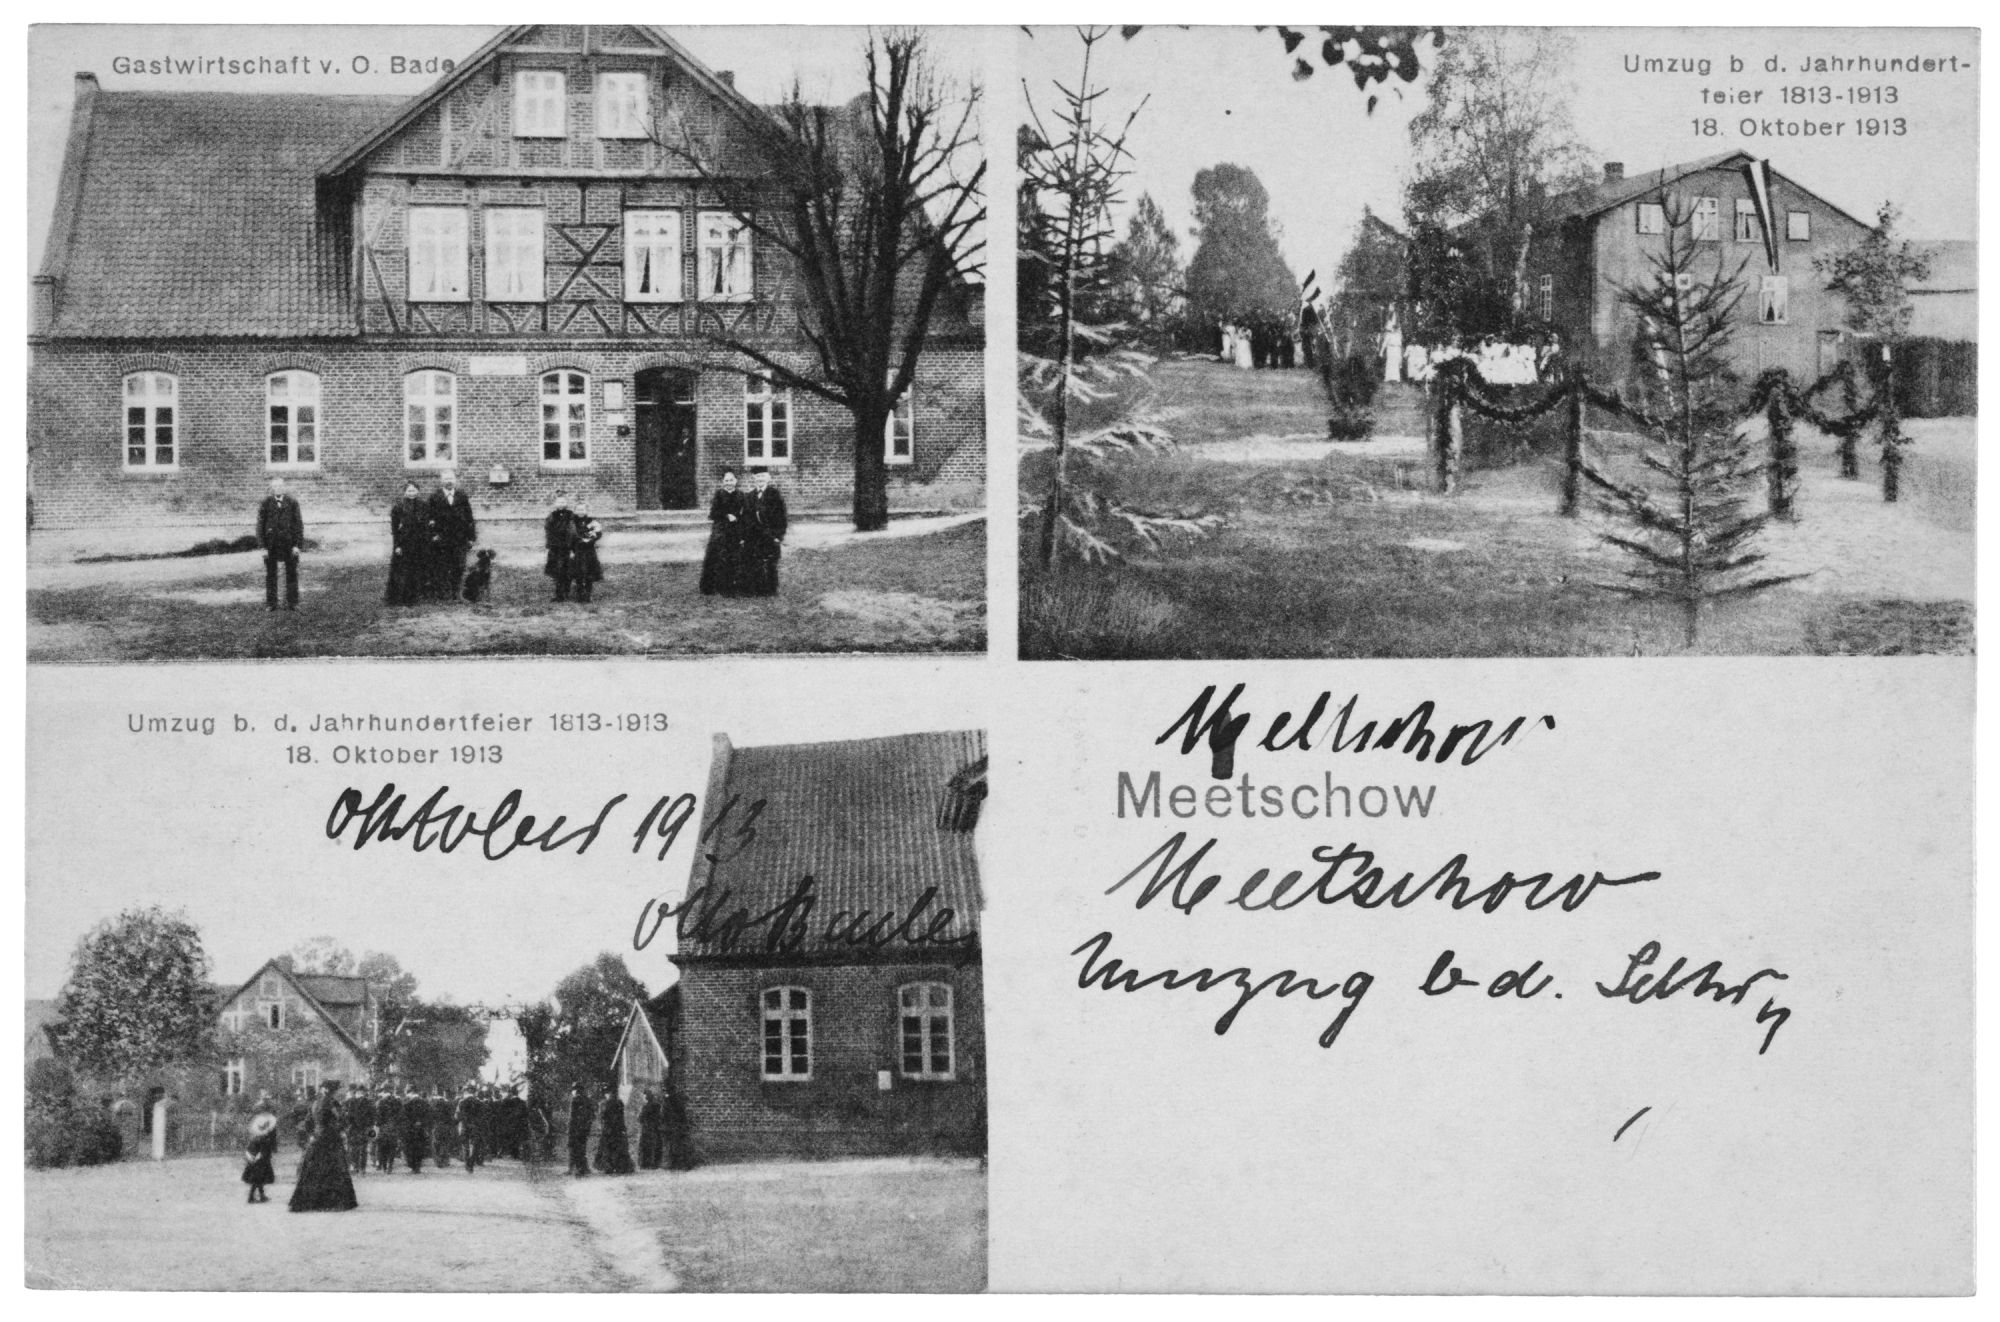 Gastwirtschaft v. O. Bade
Umzug b d. Jahrhundert-
feier 1813-1913
18. Oktober 1913
Umzug b. d. Jahrhundertfeier 1813-1913
18. Oktober 1913
Oktober 1913
Otto Bade
Meetschow
Meetschow
Meetschow
Umzug b d.